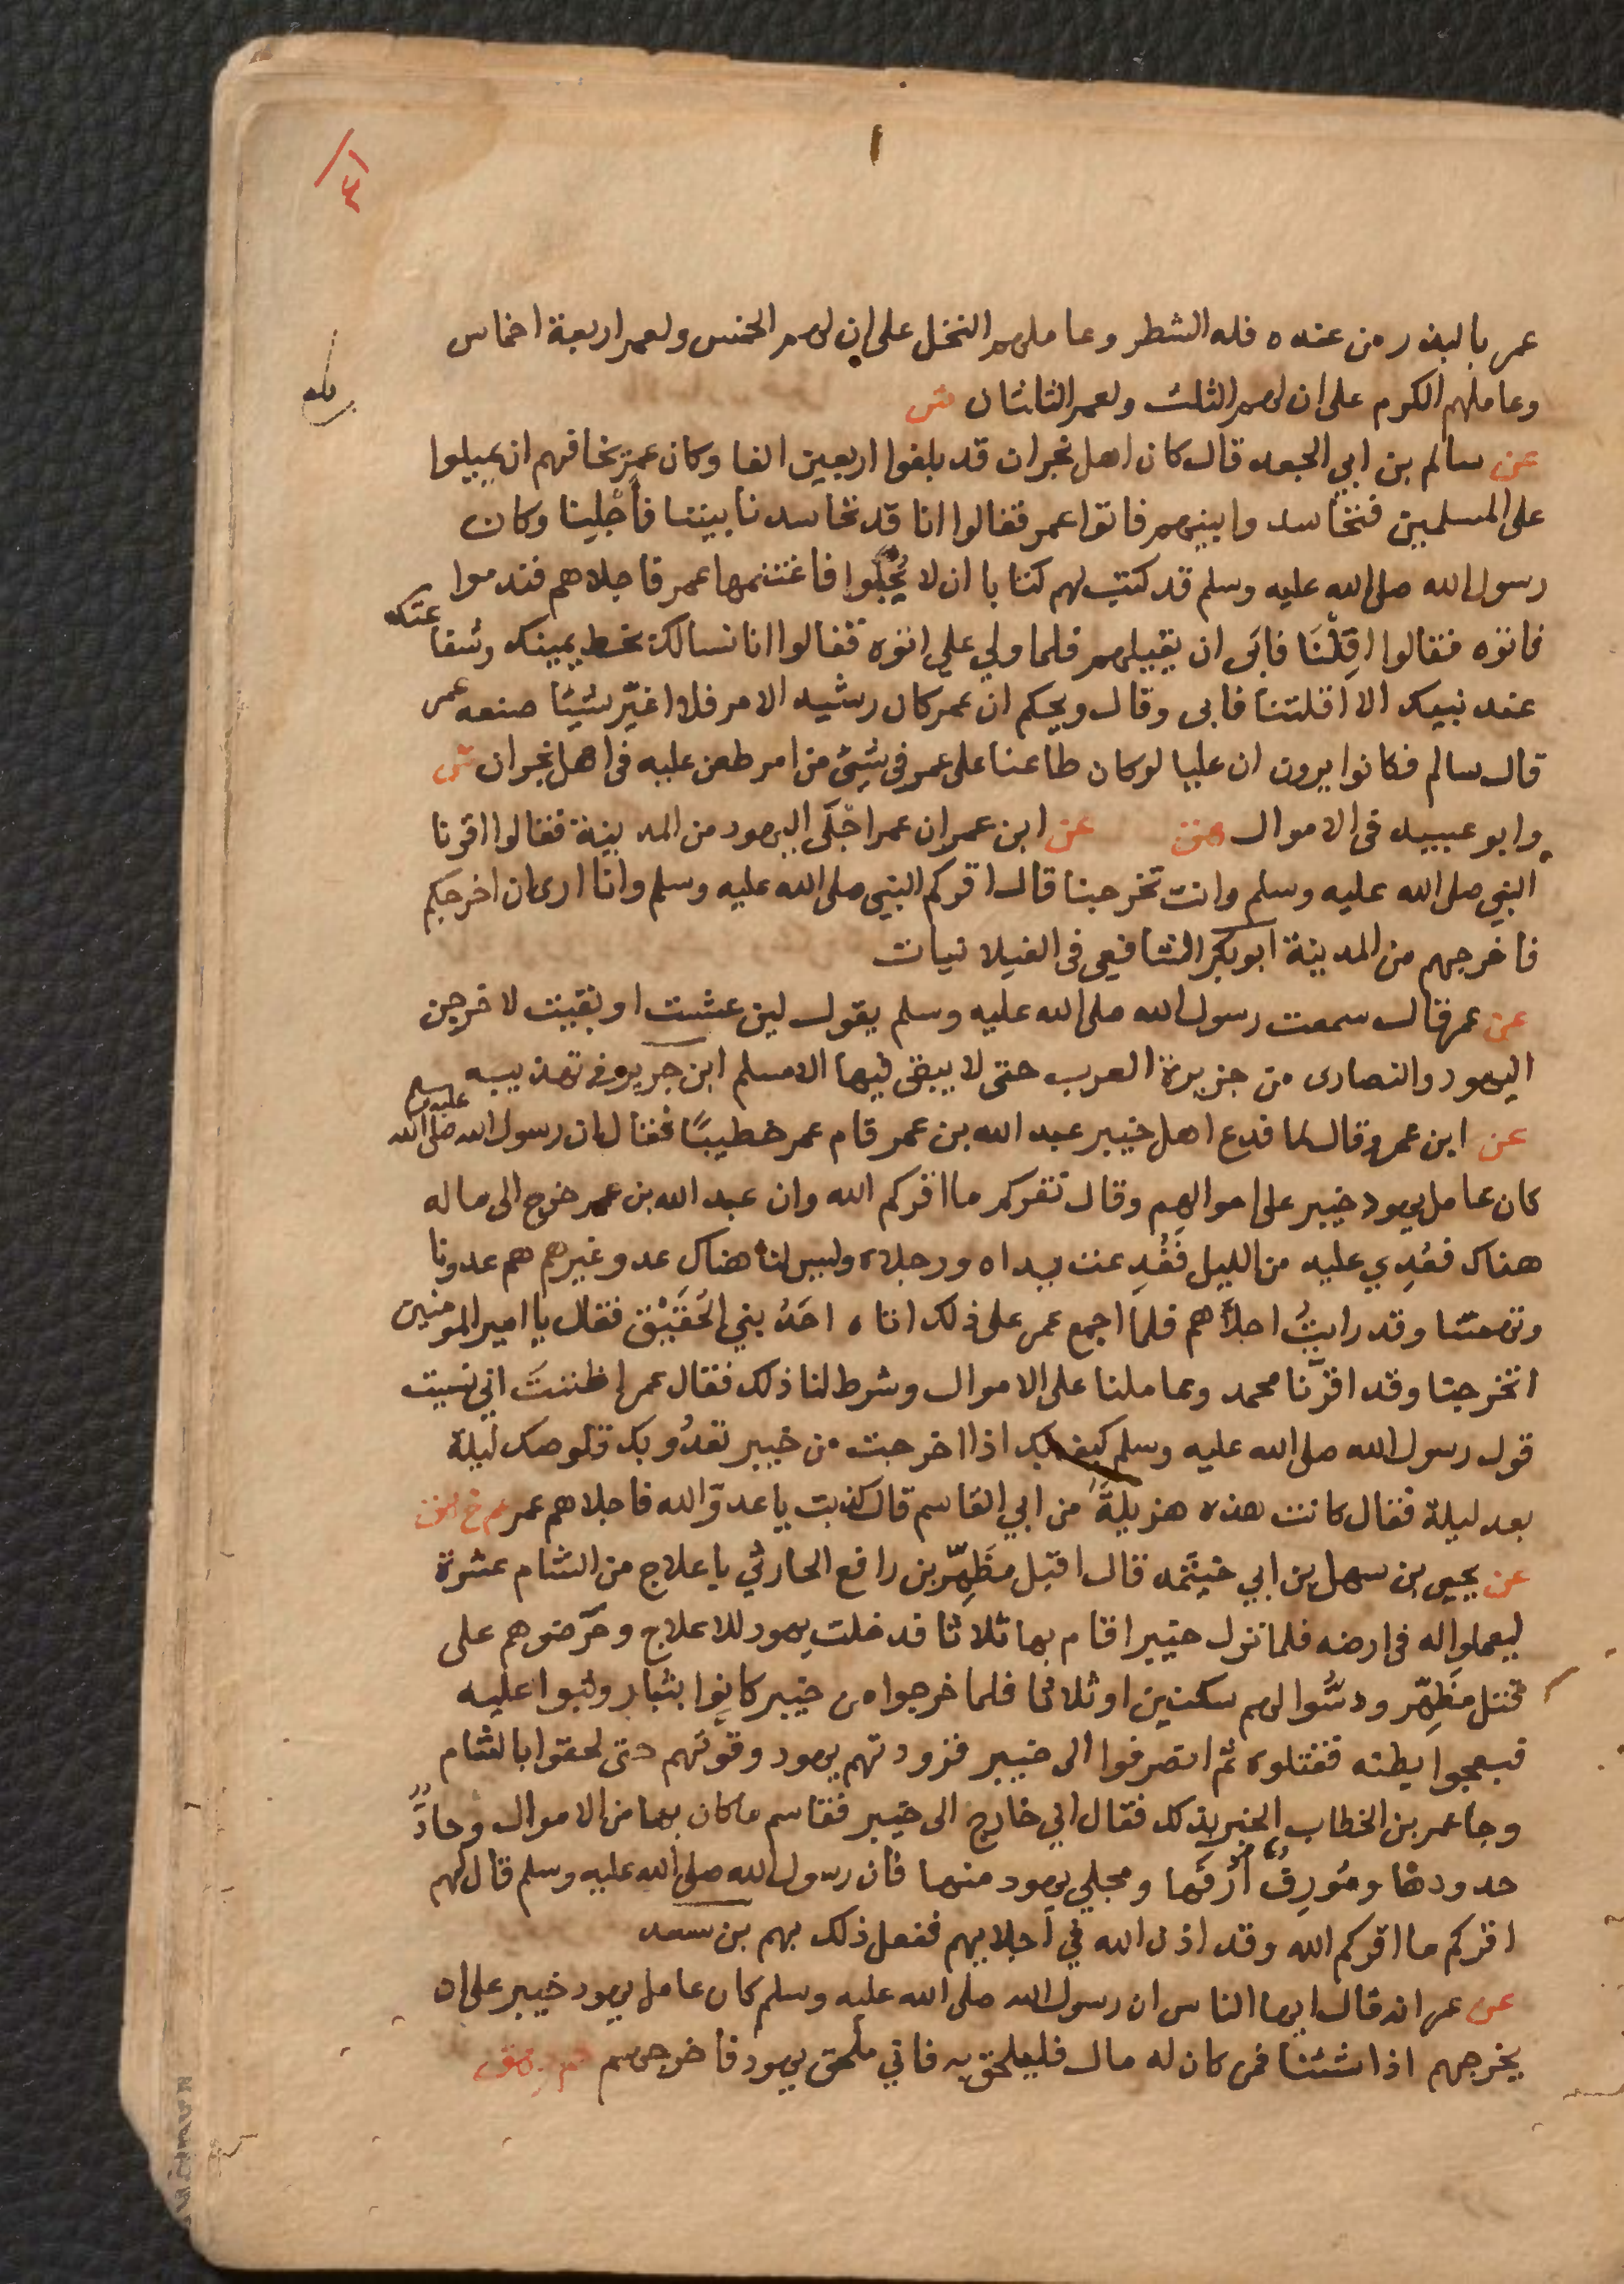 ١
٤١
عمر بالبذر من عنده فله الشطر وعاملهم النخل على ان لهم الخمس ولعمر اربعة اخماس
وعاملهم الكرم على ان لهم الثلث ولعمر الثلثان ش
عن سالم بن ابي الجعد قال كان اهل نجران قد بلغوا اربعين الفا وكان عمر يخافهم ان يميلوا
على المسلمين فتحاسدوا بينهم فاتوا عمر فقالوا انا قد تحاسدنا بيننا فأجلينا وكان
رسول الله صلى الله عليه وسلم قد كتب لهم كتابا ان لا يُجْلَوا فاغتنمها عمر فاجلاهم فندموا
فاتوه فقالوا اقِلْنَا فابَى ان يقيلهم فلما ولي علي اتوه فقالوا انا نسالك بخط يمينك وشفاعتك
عند نبيك الا اقلتنا فابى وقال ويحكم ان عمر كان رشيد الامر فلا اغيّر شيئا صنعه عمر
قال سالم فكانوا يرون ان عليا لو كان طاعنا على عمر في شيئ من امر طعن عليه في اهل نجران ش
وابو عبيد في الاموال هق عن ابن عمر ان عمر اجْلَى اليهود من المدينة فقالوا اقرنا
النبي صلى الله عليه وسلم وانت تخرجنا قال اقركم النبي صلى الله عليه وسلم وانا ارى ان اخرجكم
فاخرجهم من المدينة ابو بكر الشافعي في الغيلانيات
عن عمر قال سمعت رسول الله صلى الله عليه وسلم يقول لين عشت او بقيت لاخرجن
اليهود والنصارى من جزيرة العرب حتى لا يبقى فيها الا مسلم ابن جرير في تهذيبه
عن ابن عمر قال لما فدع اهل خيبر عبد الله بن عمر قام عمر خطيبًا فقال ان رسول الله صلى الله عليه وسلم
كان عامل يهود خيبر على اموالهم وقال نقركم ما اقركم الله وان عبد الله بن عمر خرج الى ماله
هناك فعُدِي عليه من الليل فَفُدِعت يداه ورجلاه وليس لنا هناك عدو غيرهم هم عدونا
وتهمتنا وقد رايتُ اجلاَهم فلما اجمع عمر على ذلك اتاه احَدُ بني الحُقَيْق فقال يا امير المومنين
اتخرجنا وقد اقرّنا محمد وعاملنا على الاموال وشرط لنا ذلك فقال عمر اظننتَ اني نسيت
قول رسول الله صلى الله عليه وسلم كيف بك اذا اخرجت من خيبر تعدُو بك قلوصك ليلة
بعد ليلة فقال كانت هذه هزيلةً من ابي القاسم قال كذبت يا عدوّ الله فاجلاهم عمر خ هق
عن يحيى بن سهل بن ابي حيثمه قال اقبل مظَهِّر بن رافع الحارثي باعلاج من الشام عشرة
ليعملوا له في ارضه فلما نزل خيبر اقام بها ثلاثا فدخلت يهود للاعلاج وحَرّضوهم على
قتل مظَهِّر ودسُّوا لهم سكينين او ثلاثا فلما خرجوا من خيبر كانوا بثبار وثبوا عليه
فبعجوا بطنه فقتلوه ثم انصرفوا الى خيبر فزودتهم يهود وقوَّتهم حتى لحقوا بالشام
وجا عمر بن الخطاب الخبر بذلك فقال اني خارج الى خيبر فقاسم ما كان بها من الاموال وحادٌّ
حدودها ومُورِفٌ أُرَفَها ومجلي يهود منها فان رسول الله صلى الله عليه وسلم قال لهم
اقركم ما اقركم الله وقد اذن الله في اجلايهم ففعل ذلك بهم بن سعد
عن عمر انه قال ايها الناس ان رسول الله صلى الله عليه وسلم كان عامل يهود خيبر على ان
يخرجهم اذا شئنا فمن كان له مال فليلحق به فاني مخرج يهود فاخرجهم